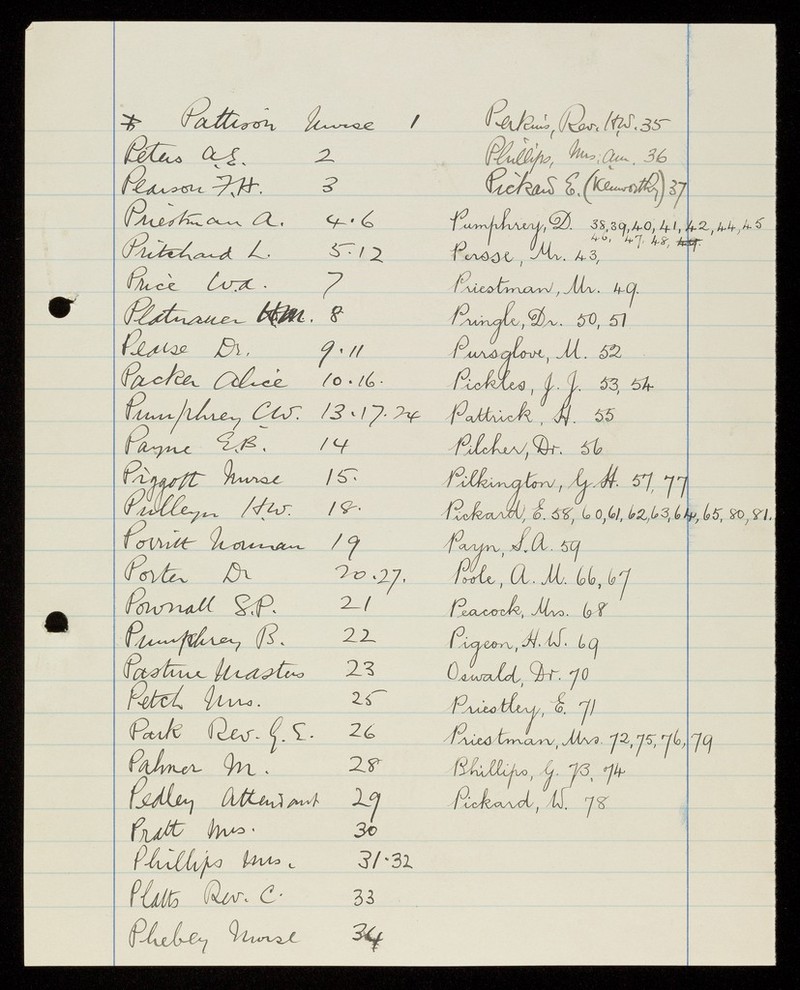 Pattison Nurse 1
Peters A.E. 2
Pearson F.H. 3
Priestman A. 4.6
Pritchard L. 5.12
Price W.A. 7
Platnauer H.M. 8
Pearse Dr. 9.11
Packer Alice 10.16.
Pumphrey C.W. 13.17.24
Payne E.B. 14
Piggott Nurse 15.
Pulleyn H.W. 18.
Porritt Norman 19
Porter Dr 20.27.
Pownall S.P. 21
Pumphrey B. 22
Pasture Masters 23
Petch Mrs. 25
Park Rev. G.E. 26
Palmer M. 28
Pedley Attendant 29
Pratt Mrs. 30
Phillips Mrs. 31.32
Platts Rev. C. 33
Phebey Nurse 34
Perkins, Rev. H.W. 35
Phillips, Mrs. Am. 36
Pickard E. (Kenworthy) 37
Pumphrey, D. 38,39,40,41,42,44,45
46, 47, 48, 49.
Persse, Mr. 43,
Priestman, Mr. 49.
Pringle, Dr. 50, 51
Pursglove, M. 52
Pickles, J. J. 53, 54
Pattrick, H. 55
Pilcher, Dr. 56
Pilkington, G H. 57, 77
Pickard, E. 58, 60,61,62,63,64,65,80,81.
Payn, S.A. 59
Poole, A. M. 66,67
Peacock, Mrs. 68
Pigeon, H. W. 69
Oswald, Dr. 70
Priestley, E. 71
Priestman, Mrs. 72,75,76,79
Phillips, G. 73, 74
Pickard, W. 78